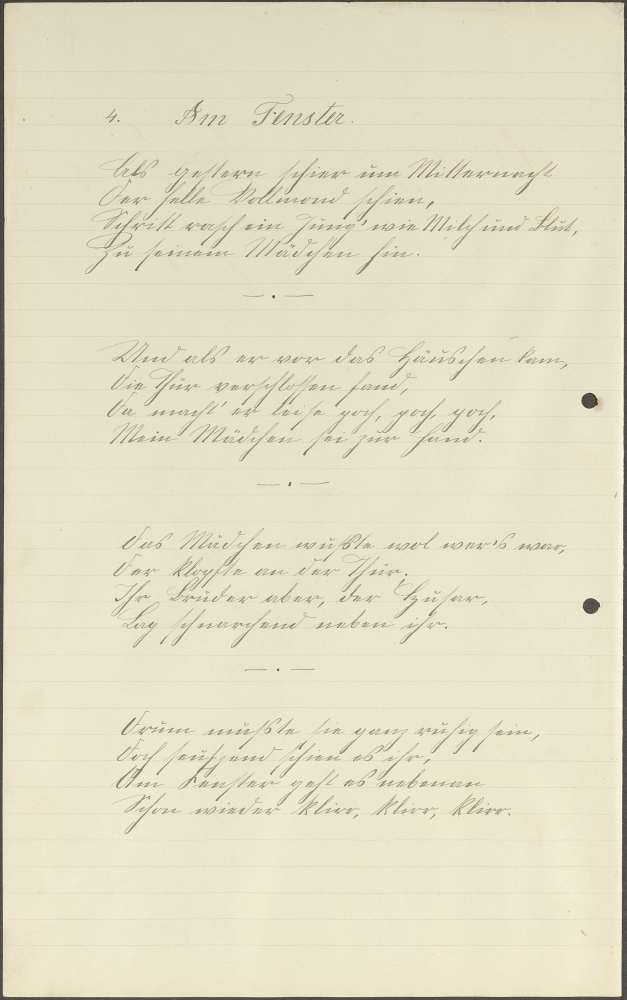 4. Am Fenster.
Als gestern schier um Mitternacht
Der helle Vollmond schien,
Schritt rasch ein Jung' wie Milch und Blut,
Zu seinem Mädchen hin.
Und als er vor das Häuschen kam,
Die Thür verschlossen fand,
Da macht' er leise poch, poch, poch,
Mein Mädchen sei zur Hand.
Das Mädchen wußte wol wer's war,
Der klopfte an der Thür.
Ihr Bruder aber, der Husar,
Lag schnarchend neben ihr.
Drum mußte sie ganz ruhig sein,
Doch seufzend schien es ihr,
Am Fenster geht es nebenan
Schon wieder klirr, klirr, klirr.